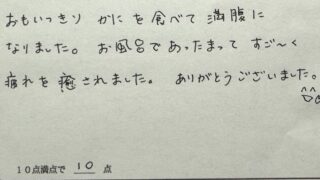 おもいっきり かに を 食べて 満腹に
なりました。 お風呂で あったまって すご〜く
疲れを 癒されました。 ありがとうございました。
10点満点で 10 点